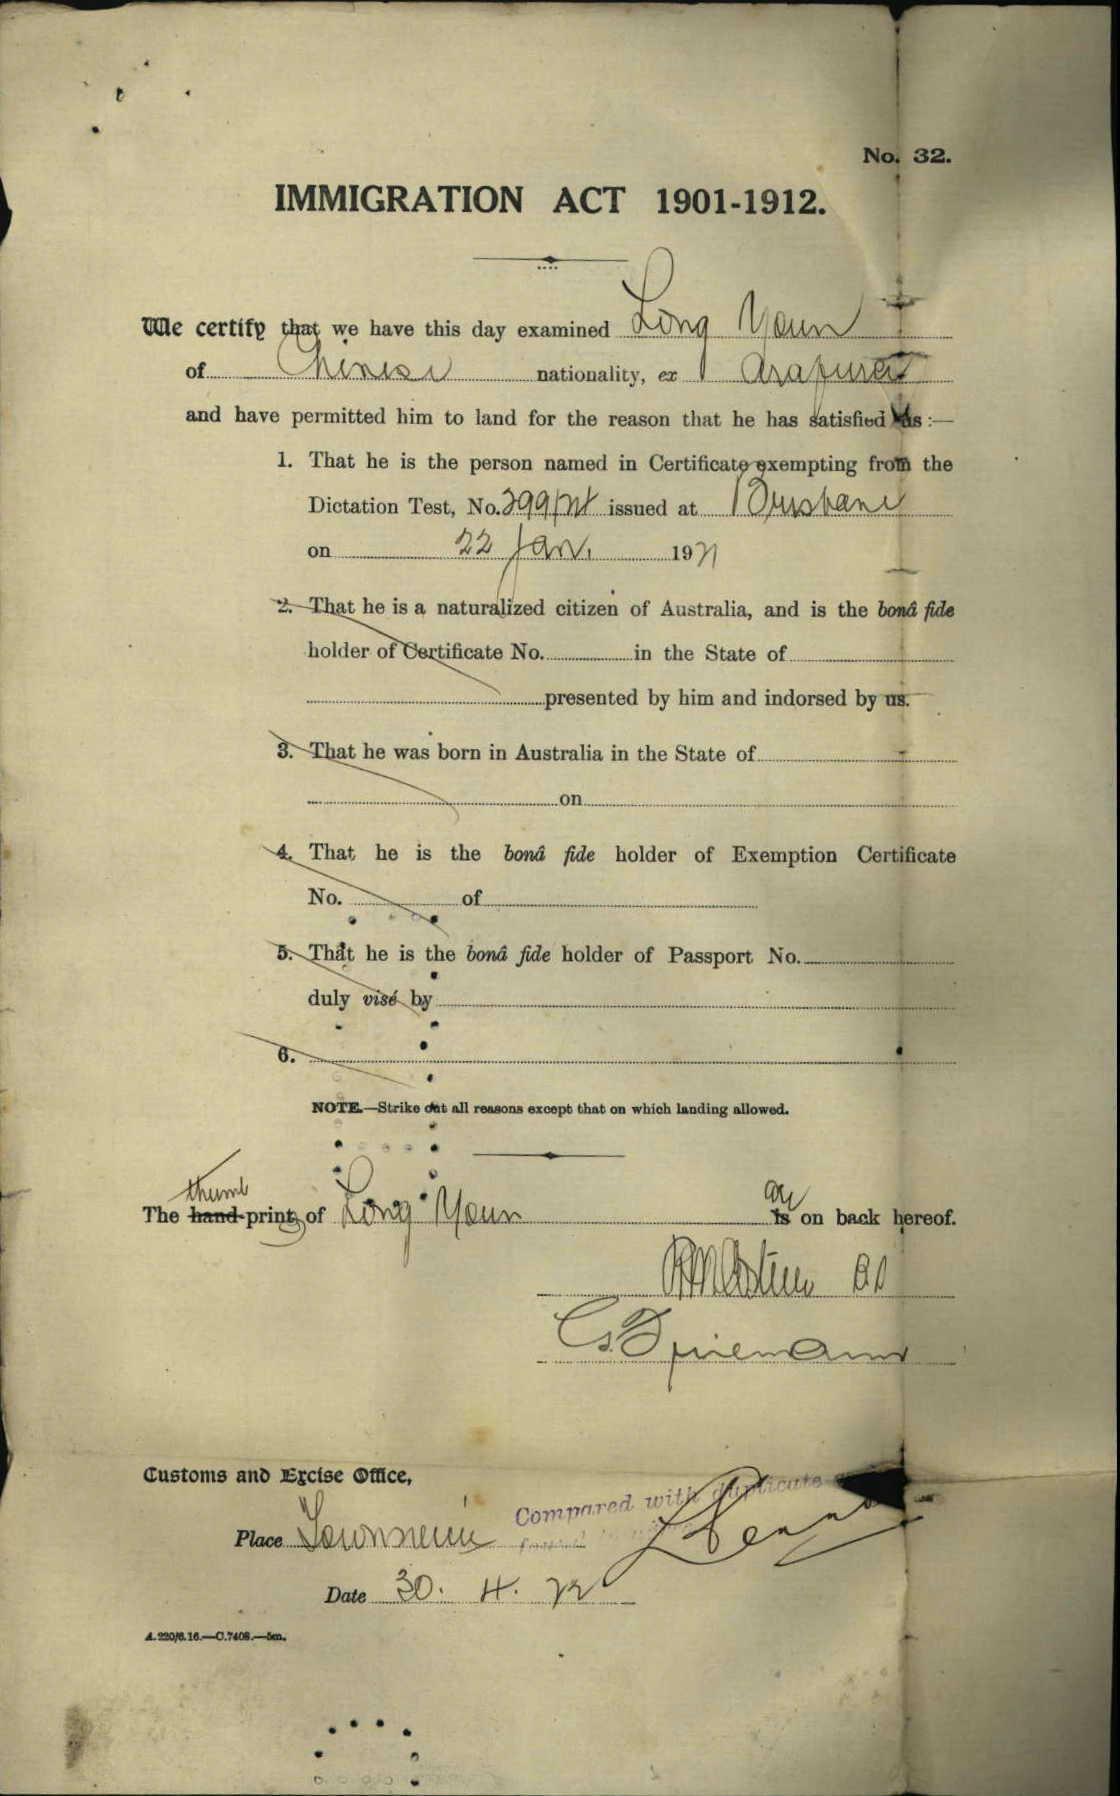 No. 32.
IMMIGRATION ACT 1901-1912.
We certify that we have this day examined Long Youn
of Chinese nationality, ex Arafura
and have permitted him to land for the reason that he has satisfied us :—
1. That he is the person named in Certificate exempting from the
Dictation Test, No. 299/21 issued at Brisbane
on 22 Jan. 1921
2. That he is a naturalized citizen of Australia, and is the bonâ fide
holder of Certificate No. in the State of
presented by him and indorsed by us.
3. That he was born in Australia in the State of
on
4. That he is the bonâ fide holder of Exemption Certificate
No. of
5. That he is the bonâ fide holder of Passport No.
duly visé by
6.
NOTE.—Strike out all reasons except that on which landing allowed.
thumb are
The hand-prints of Long Youn is on back hereof.
Customs and Excise Office,
Compared with duplicate
Place Townsville
Date 30. 4. 22
A.220/6.16.—C.7408.—5m.